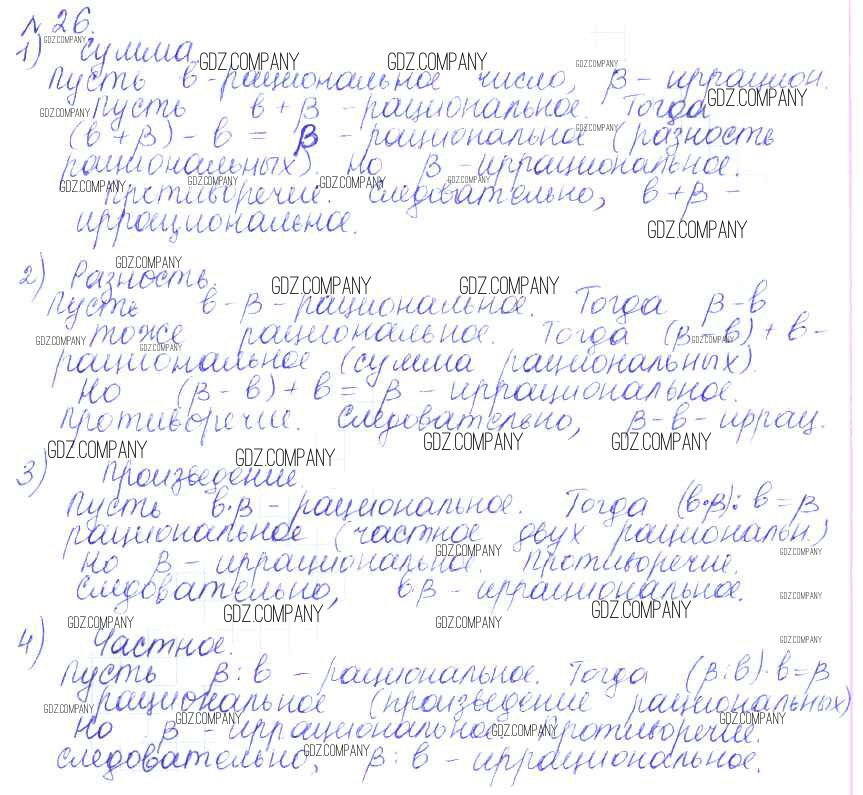 № 26.
1) Сумма
Пусть в - рациональное число, β - иррацион.
Пусть в + β - рациональное. Тогда
(в + β) - в = β - рациональное (разность
рациональных). Но β - иррациональное.
Противоречие. Следовательно, в + β -
иррациональное.
2) Разность.
Пусть в - β - рациональное. Тогда β - в
тоже рациональное. Тогда (β - в) + в -
рациональное (сумма рациональных).
Но (β - в) + в = β - иррациональное.
Противоречие. Следовательно, β - в - иррац.
3) Произведение.
Пусть в·β - рациональное. Тогда (в·β) : в = β
рациональное (частное двух рациональн.)
Но β - иррациональное. Противоречие.
Следовательно, в·β - иррациональное.
4) Частное.
Пусть β : в - рациональное. Тогда (β : в) · в = β
рациональное (произведение рациональных)
Но β - иррациональное. Противоречие.
Следовательно, β : в - иррациональное.